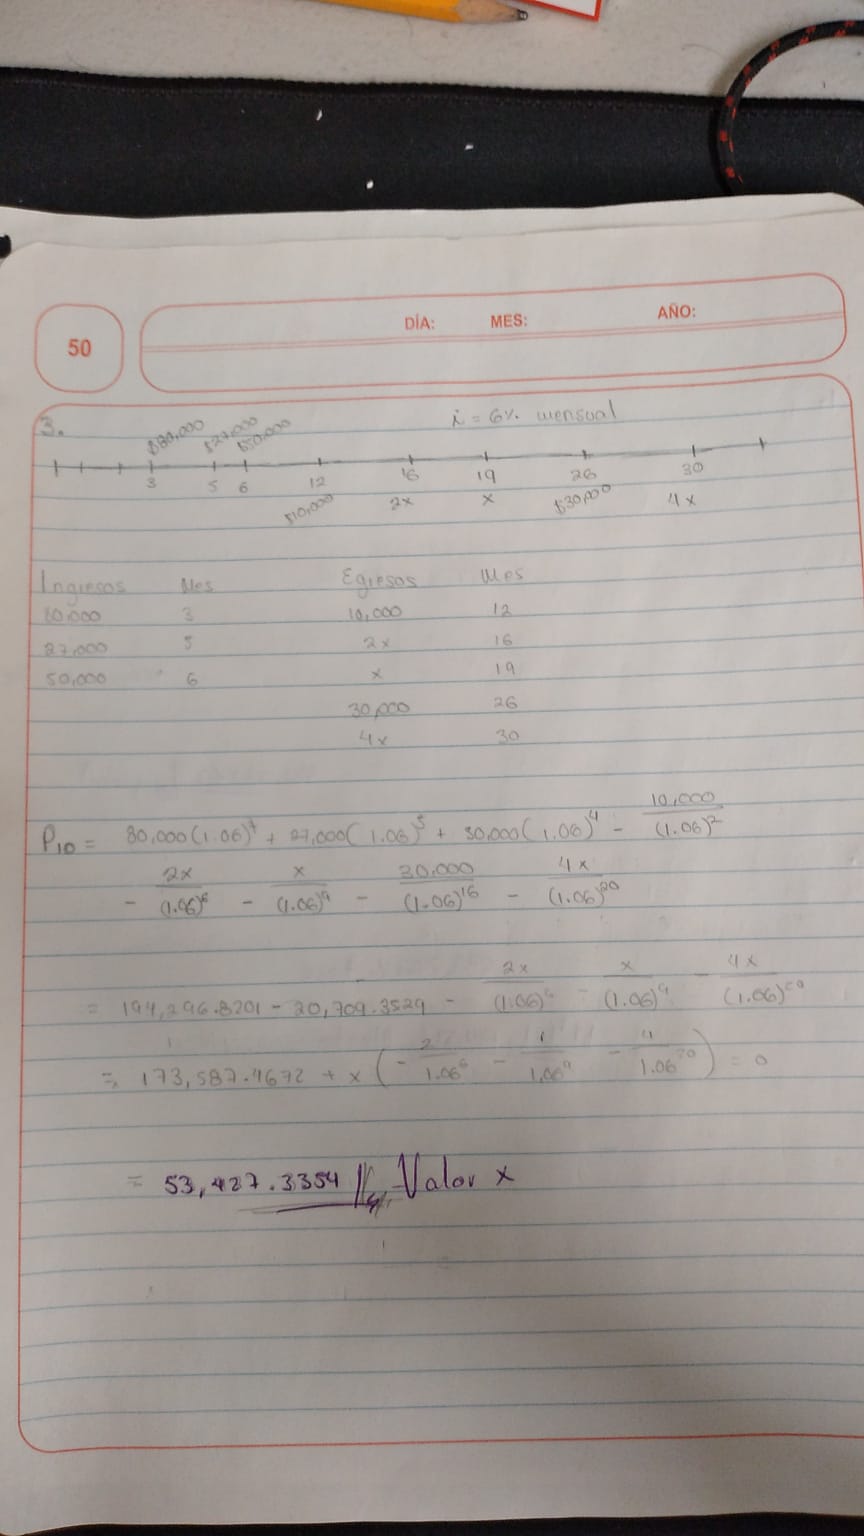 DÍA: MES: AÑO:
50
3.
$80,000 $27,000 $50,000 i = 6% mensual
3 5 6 12 16 19 26 30
$10,000 2x x $30,000 4x
Ingresos Mes Egresos Mes
80,000 3 10,000 12
27,000 5 2x 16
50,000 6 x 19
30,000 26
4x 30
P10 = 80,000(1.06)^7 + 27,000(1.06)^5 + 50,000(1.06)^4 - 10,000/(1.06)^2
- 2x/(1.06)^6 - x/(1.06)^9 - 30,000/(1.06)^16 - 4x/(1.06)^20
= 194,296.8201 - 20,709.3529 - 2x/(1.06)^6 - x/(1.06)^9 - 4x/(1.06)^20
= 173,587.4672 + x(- 2/1.06^6 - 1/1.06^9 - 4/1.06^20) = 0
= 53,427.3354 Valor x